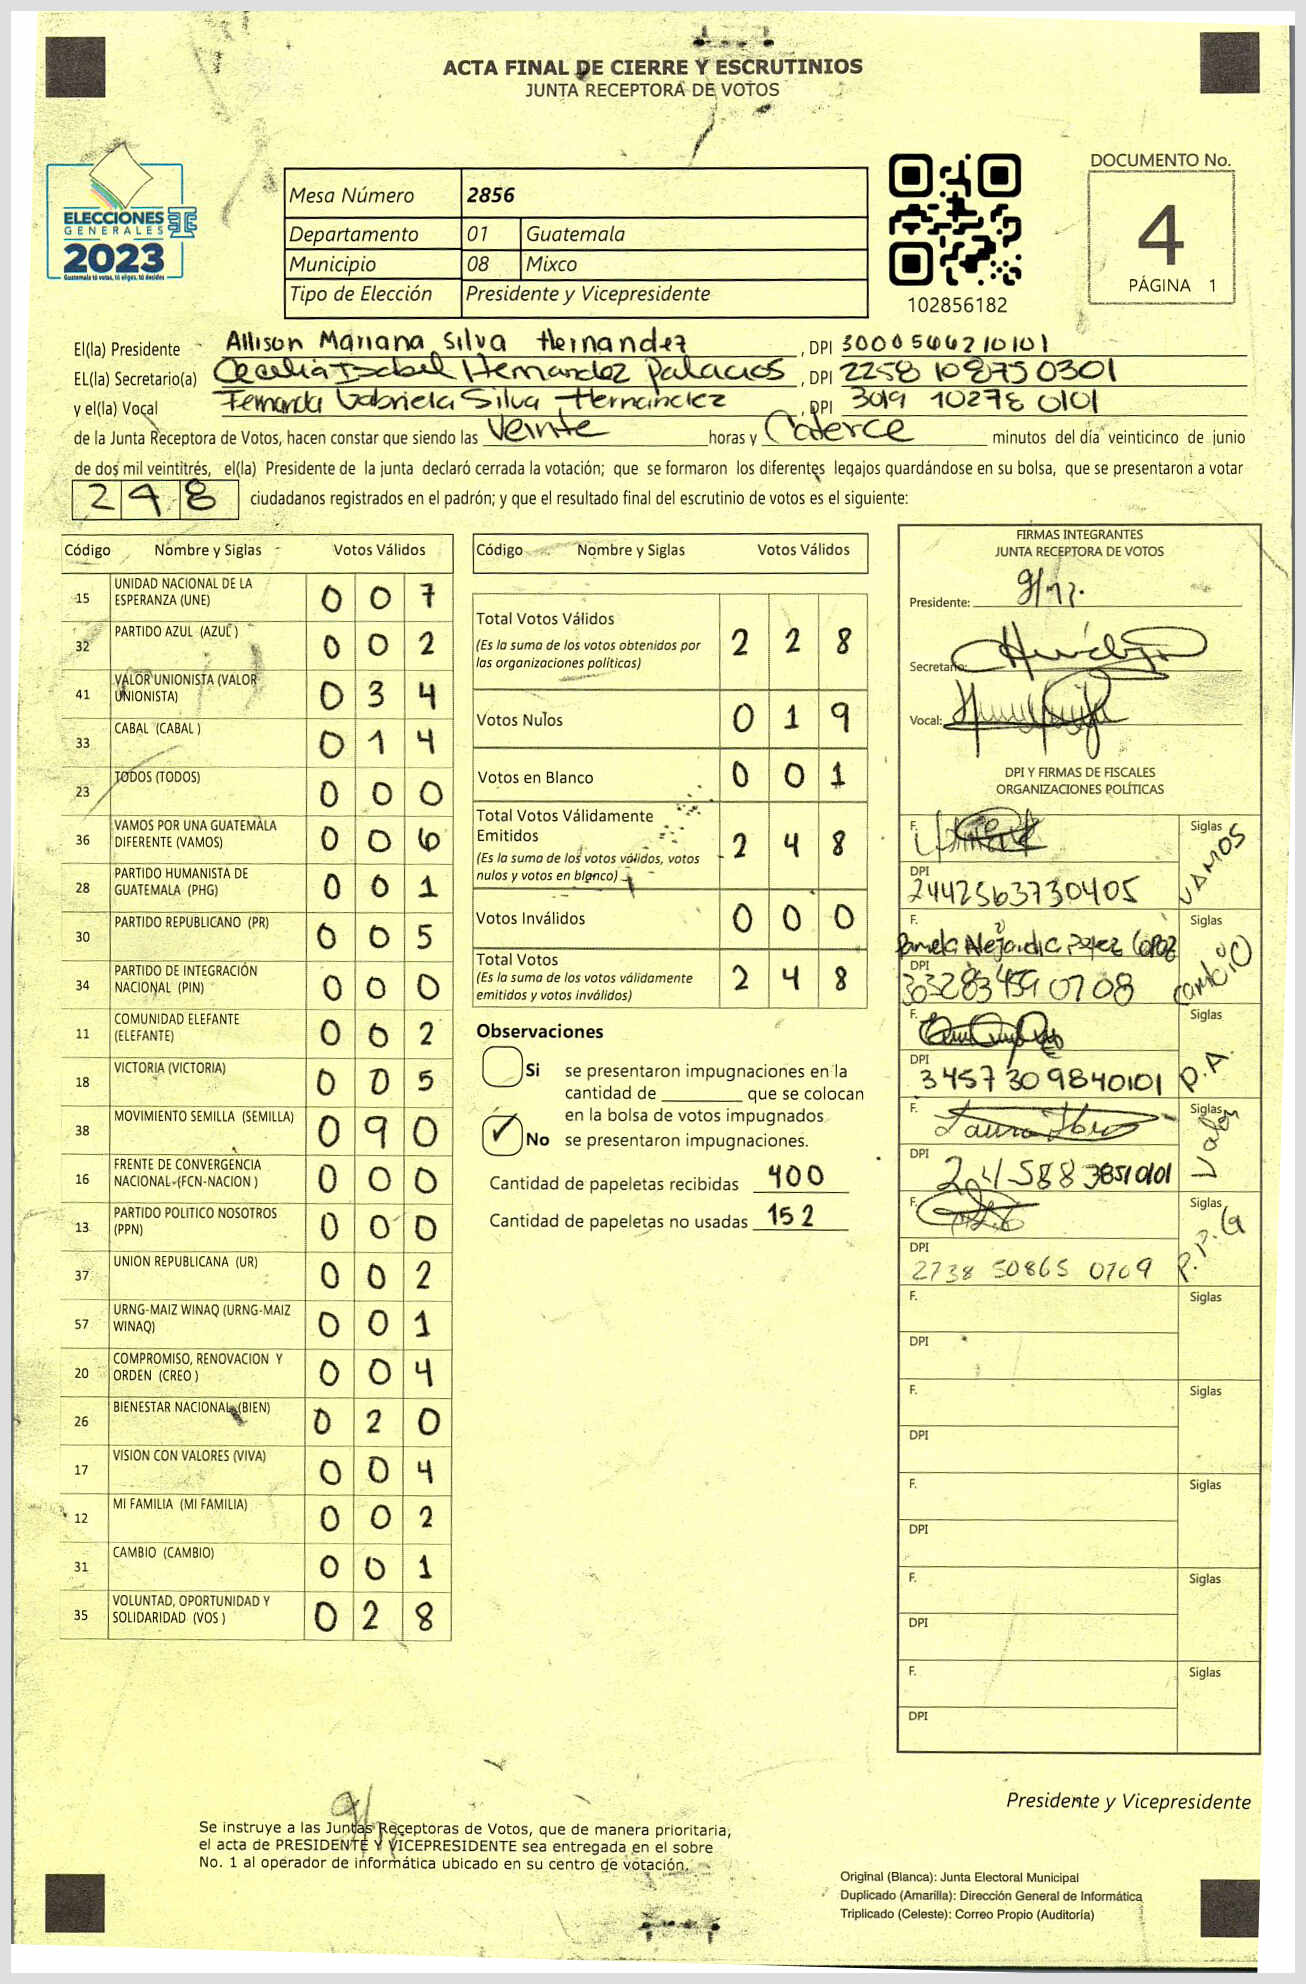 ACTA FINAL DE CIERRE Y ESCRUTINIOS
JUNTA RECEPTORA DE VOTOS
ELECCIONES
GENERALES
2023
Guatemala tú votas, tú eliges, tú decides
Mesa Número 2856
Departamento 01 Guatemala
Municipio 08 Mixco
Tipo de Elección Presidente y Vicepresidente
102856182
DOCUMENTO No.
4
PÁGINA 1
El(la) Presidente Allison Mariana Silva Hernandez, DPI 3000566210101
EL(la) Secretario(a) Cecilia Isabel Hernandez Palacios, DPI 2258108750301
y el(la) Vocal Fernanda Gabriela Silva Hernández, DPI 3019 10278 0101
de la Junta Receptora de Votos, hacen constar que siendo las Veinte horas y Catorce minutos del día veinticinco de junio
de dos mil veintitrés, el(la) Presidente de la junta declaró cerrada la votación; que se formaron los diferentes legajos guardándose en su bolsa, que se presentaron a votar
248 ciudadanos registrados en el padrón; y que el resultado final del escrutinio de votos es el siguiente:
Código Nombre y Siglas Votos Válidos
15 UNIDAD NACIONAL DE LA ESPERANZA (UNE) 0 0 7
32 PARTIDO AZUL (AZUL ) 0 0 2
41 VALOR UNIONISTA (VALOR UNIONISTA) 0 3 4
33 CABAL (CABAL ) 0 1 4
23 TODOS (TODOS) 0 0 0
36 VAMOS POR UNA GUATEMALA DIFERENTE (VAMOS) 0 0 6
28 PARTIDO HUMANISTA DE GUATEMALA (PHG) 0 0 1
30 PARTIDO REPUBLICANO (PR) 0 0 5
34 PARTIDO DE INTEGRACIÓN NACIONAL (PIN) 0 0 0
11 COMUNIDAD ELEFANTE (ELEFANTE) 0 0 2
18 VICTORIA (VICTORIA) 0 0 5
38 MOVIMIENTO SEMILLA (SEMILLA) 0 9 0
16 FRENTE DE CONVERGENCIA NACIONAL (FCN-NACION ) 0 0 0
13 PARTIDO POLITICO NOSOTROS (PPN) 0 0 0
37 UNION REPUBLICANA (UR) 0 0 2
57 URNG-MAIZ WINAQ (URNG-MAIZ WINAQ) 0 0 1
20 COMPROMISO, RENOVACION Y ORDEN (CREO ) 0 0 4
26 BIENESTAR NACIONAL (BIEN) 0 2 0
17 VISION CON VALORES (VIVA) 0 0 4
12 MI FAMILIA (MI FAMILIA) 0 0 2
31 CAMBIO (CAMBIO) 0 0 1
35 VOLUNTAD, OPORTUNIDAD Y SOLIDARIDAD (VOS ) 0 2 8
Código Nombre y Siglas Votos Válidos
Total Votos Válidos 2 2 8
(Es la suma de los votos obtenidos por
las organizaciones políticas)
Votos Nulos 0 1 9
Votos en Blanco 0 0 1
Total Votos Válidamente
Emitidos 2 4 8
(Es la suma de los votos válidos, votos
nulos y votos en blanco)
Votos Inválidos 0 0 0
Total Votos 2 4 8
(Es la suma de los votos válidamente
emitidos y votos inválidos)
Observaciones
Si se presentaron impugnaciones en la
cantidad de ________ que se colocan
en la bolsa de votos impugnados
✓ No se presentaron impugnaciones.
Cantidad de papeletas recibidas 400
Cantidad de papeletas no usadas 152
FIRMAS INTEGRANTES
JUNTA RECEPTORA DE VOTOS
Presidente:
Secretario:
Vocal:
DPI Y FIRMAS DE FISCALES
ORGANIZACIONES POLÍTICAS
F. Siglas VAMOS
DPI 2442563730405
F. Pamela Alejandra Siglas Cambio
DPI 3032834590708
F. Siglas P.A.
DPI 3457309840101
F. Siglas Valor
DPI 2458838510101
F. Siglas P.P.G
DPI 2738 50865 0709
F. Siglas
DPI
F. Siglas
DPI
F. Siglas
DPI
F. Siglas
DPI
F. Siglas
DPI
Presidente y Vicepresidente
Se instruye a las Juntas Receptoras de Votos, que de manera prioritaria,
el acta de PRESIDENTE Y VICEPRESIDENTE sea entregada en el sobre
No. 1 al operador de informática ubicado en su centro de votación.
Original (Blanca): Junta Electoral Municipal
Duplicado (Amarilla): Dirección General de Informática
Triplicado (Celeste): Correo Propio (Auditoría)